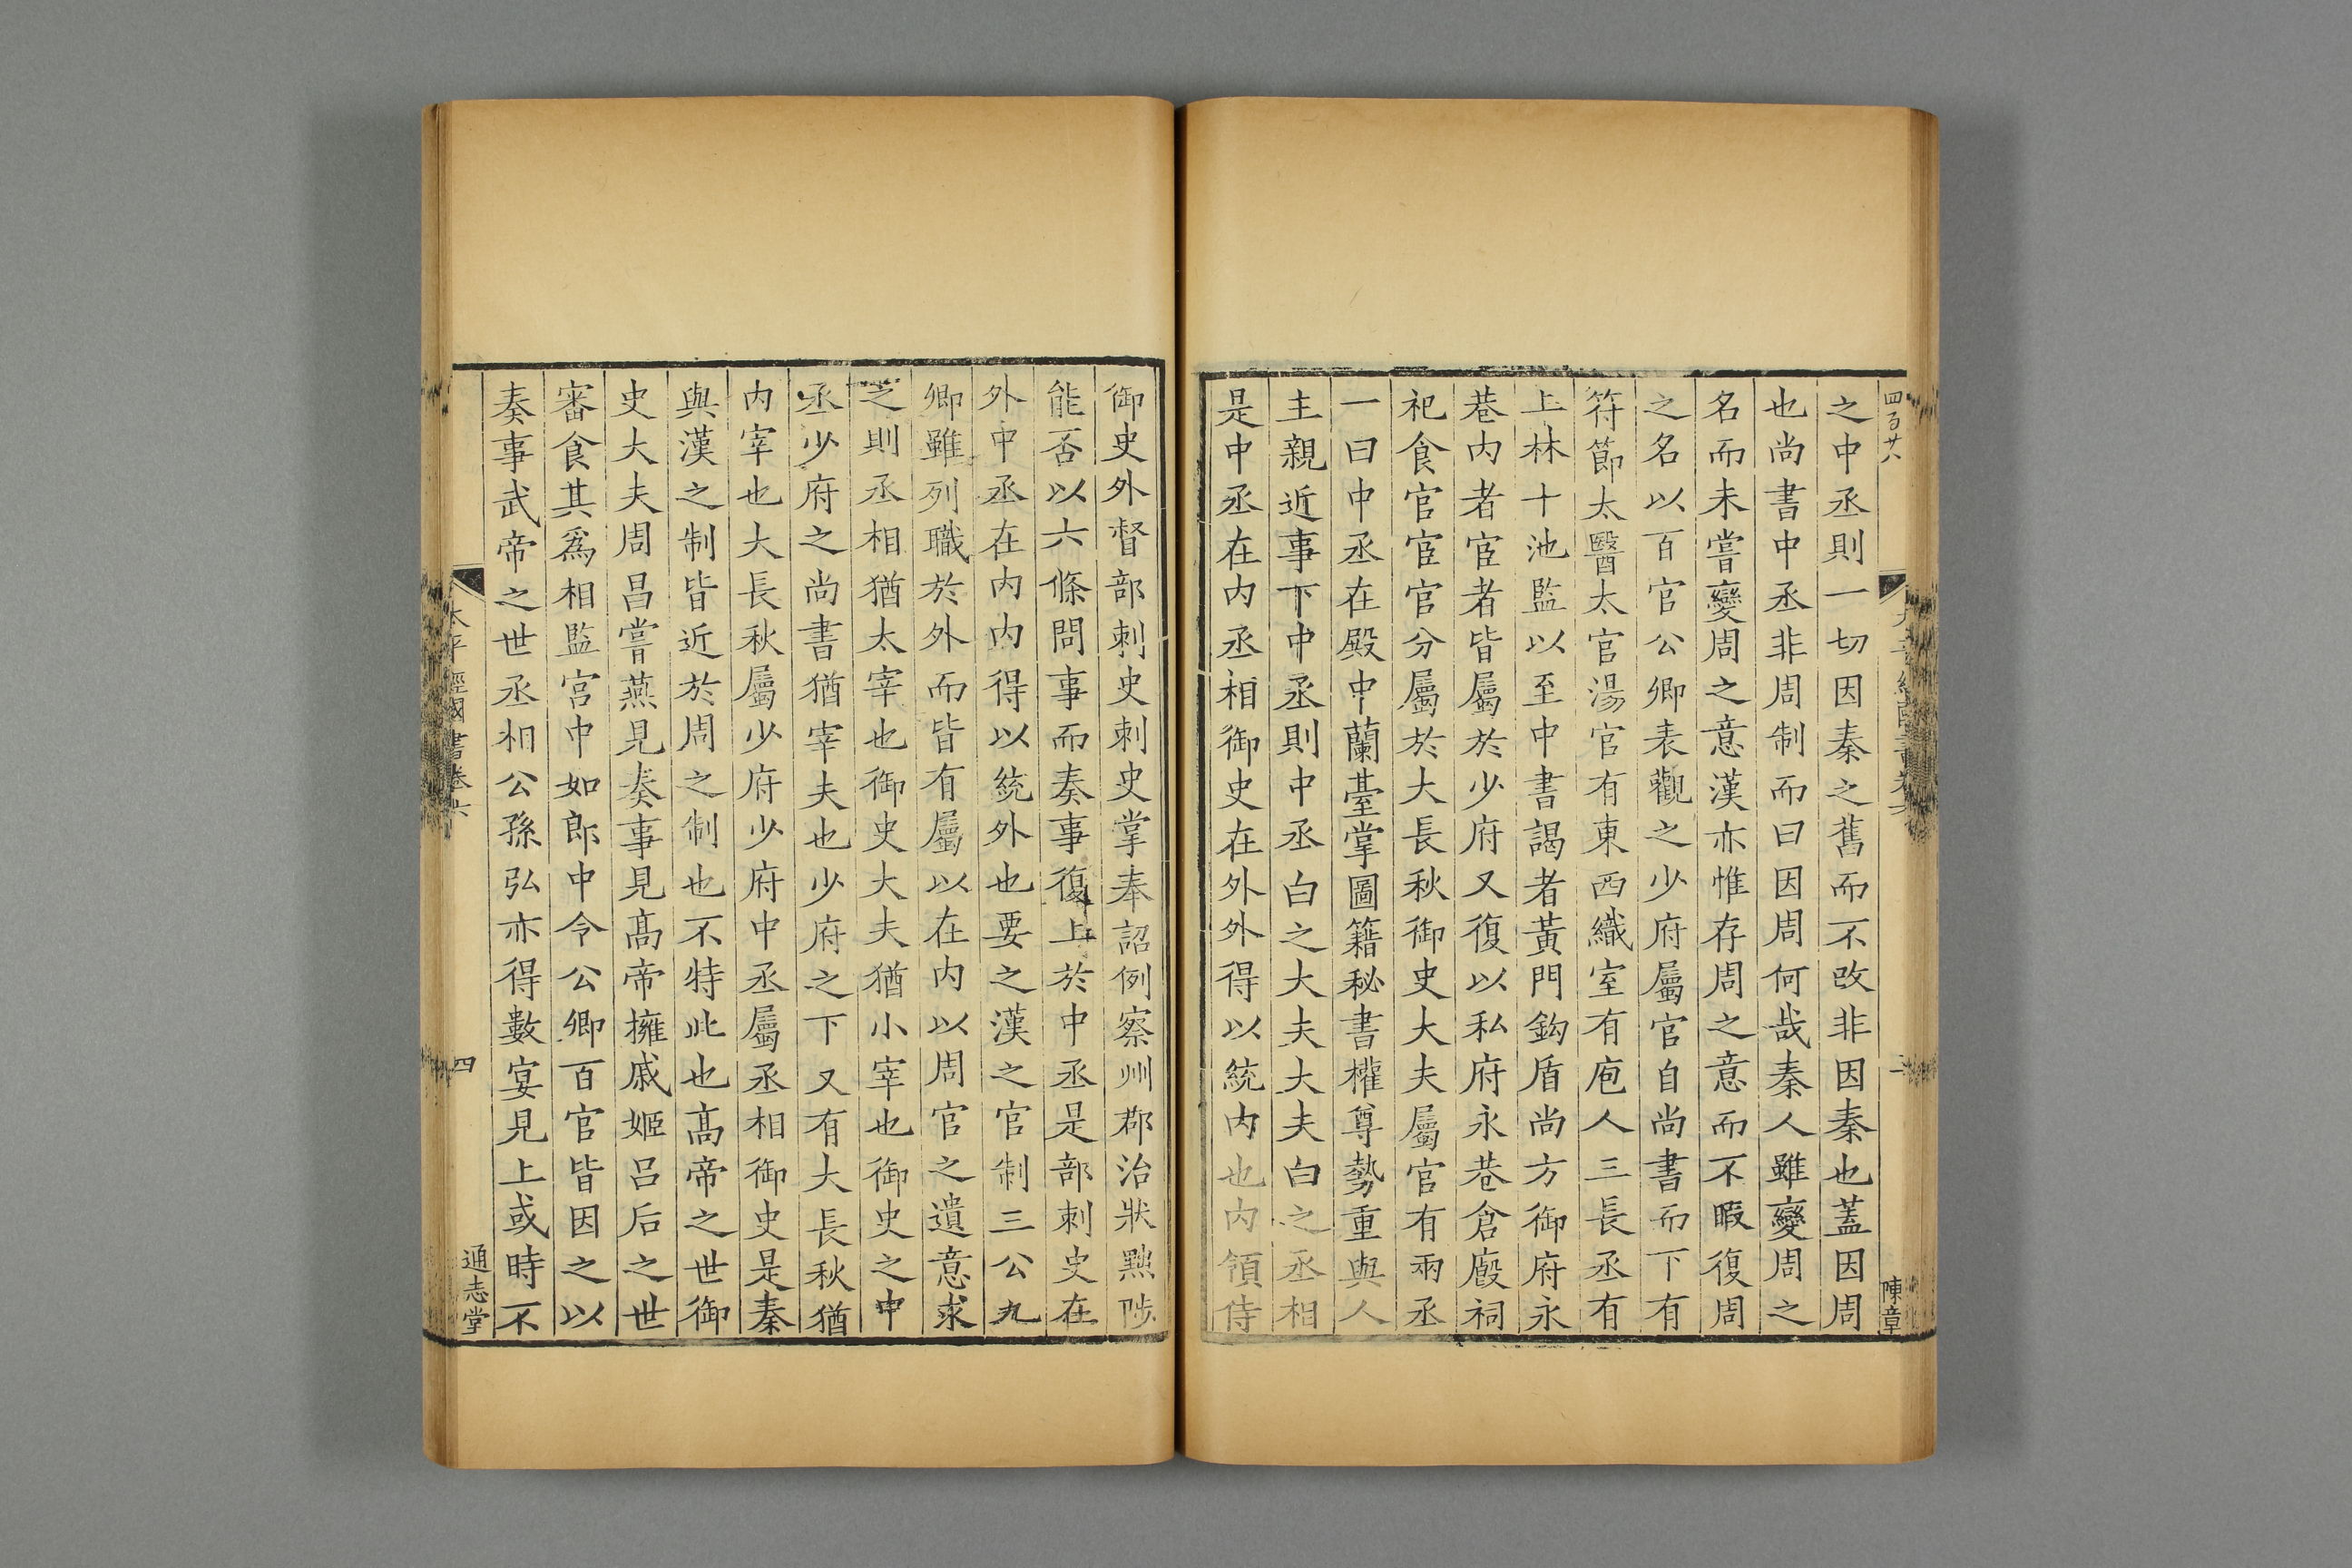 四百廿八
陳章
之中丞則一切因秦之舊而不改非因秦也蓋因周
也尚書中丞非周制而曰因周何哉秦人雖變周之
名而未嘗變周之意漢亦惟存周之意而不暇復周
之名以百官公卿表觀之少府屬官自尚書而下有
符節太醫太官湯官有東西織室有庖人三長丞有
上林十池監以至中書謁者黃門鉤盾尚方御府永
巷内者宦者皆屬於少府又復以私府永巷倉廄祠
祀食官宦官分屬於大長秋御史大夫屬官有兩丞
一曰中丞在殿中蘭臺掌圖籍秘書權尊勢重與人
主親近事下中丞則中丞白之大夫大夫白之丞相
是中丞在内丞相御史在外外得以統内也内領侍
御史外督部刺史刺史掌奉詔例察州郡治狀黜陟
能否以六條問事而奏事復上於中丞是部刺史在
外中丞在内内得以統外也要之漢之官制三公九
卿雖列職於外而皆有屬以在内以周官之遺意求
之則丞相猶太宰也御史大夫猶小宰也御史之中
丞少府之尚書猶宰夫也少府之下又有大長秋猶
内宰也大長秋屬少府少府中丞屬丞相御史是秦
與漢之制皆近於周之制也不特此也高帝之世御
史大夫周昌嘗燕見奏事見高帝擁戚姬呂后之世
審食其爲相監宮中如郎中令公卿百官皆因之以
奏事武帝之世丞相公孫弘亦得數宴見上或時不
太平經國書卷六
四
通志堂